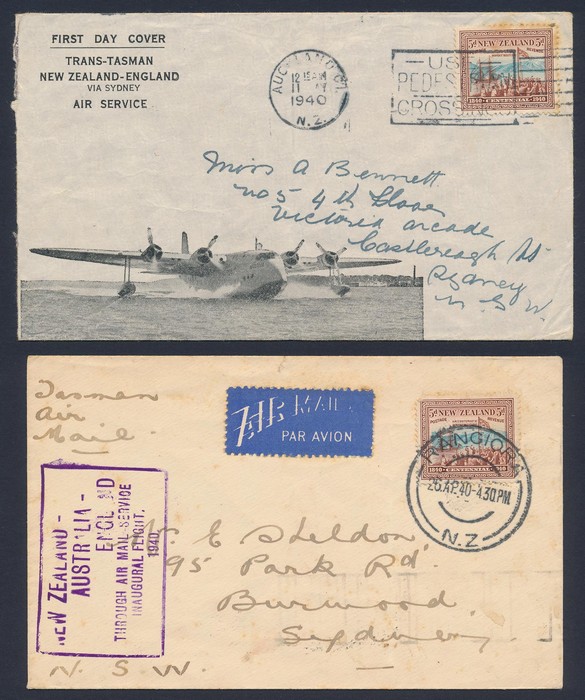 FIRST DAY COVER
TRANS-TASMAN
NEW ZEALAND-ENGLAND
VIA SYDNEY
AIR SERVICE
AUCKLAND
1940
N.Z.
USE
PEDESTRIAN
CROSSINGS
5d NEW ZEALAND 5d
1840 CENTENNIAL 1940
Miss A Bennett
No 5 4th Floor
Victoria arcade
Castlereagh St
Sydney
N.S.W.
Tasman
Air
Mail.
AIR MAIL
PAR AVION
5d NEW ZEALAND 5d
POSTAGE REVENUE
1840 CENTENNIAL 1940
RANGIORA
26 AP 40-4.30PM
N.Z.
NEW ZEALAND -
AUSTRALIA -
ENGLAND
THROUGH AIR MAIL SERVICE
INAUGURAL FLIGHT.
1940
Mr. E Sheldon,
95 Park Rd.
Burwood.
Sydney
N.S.W.